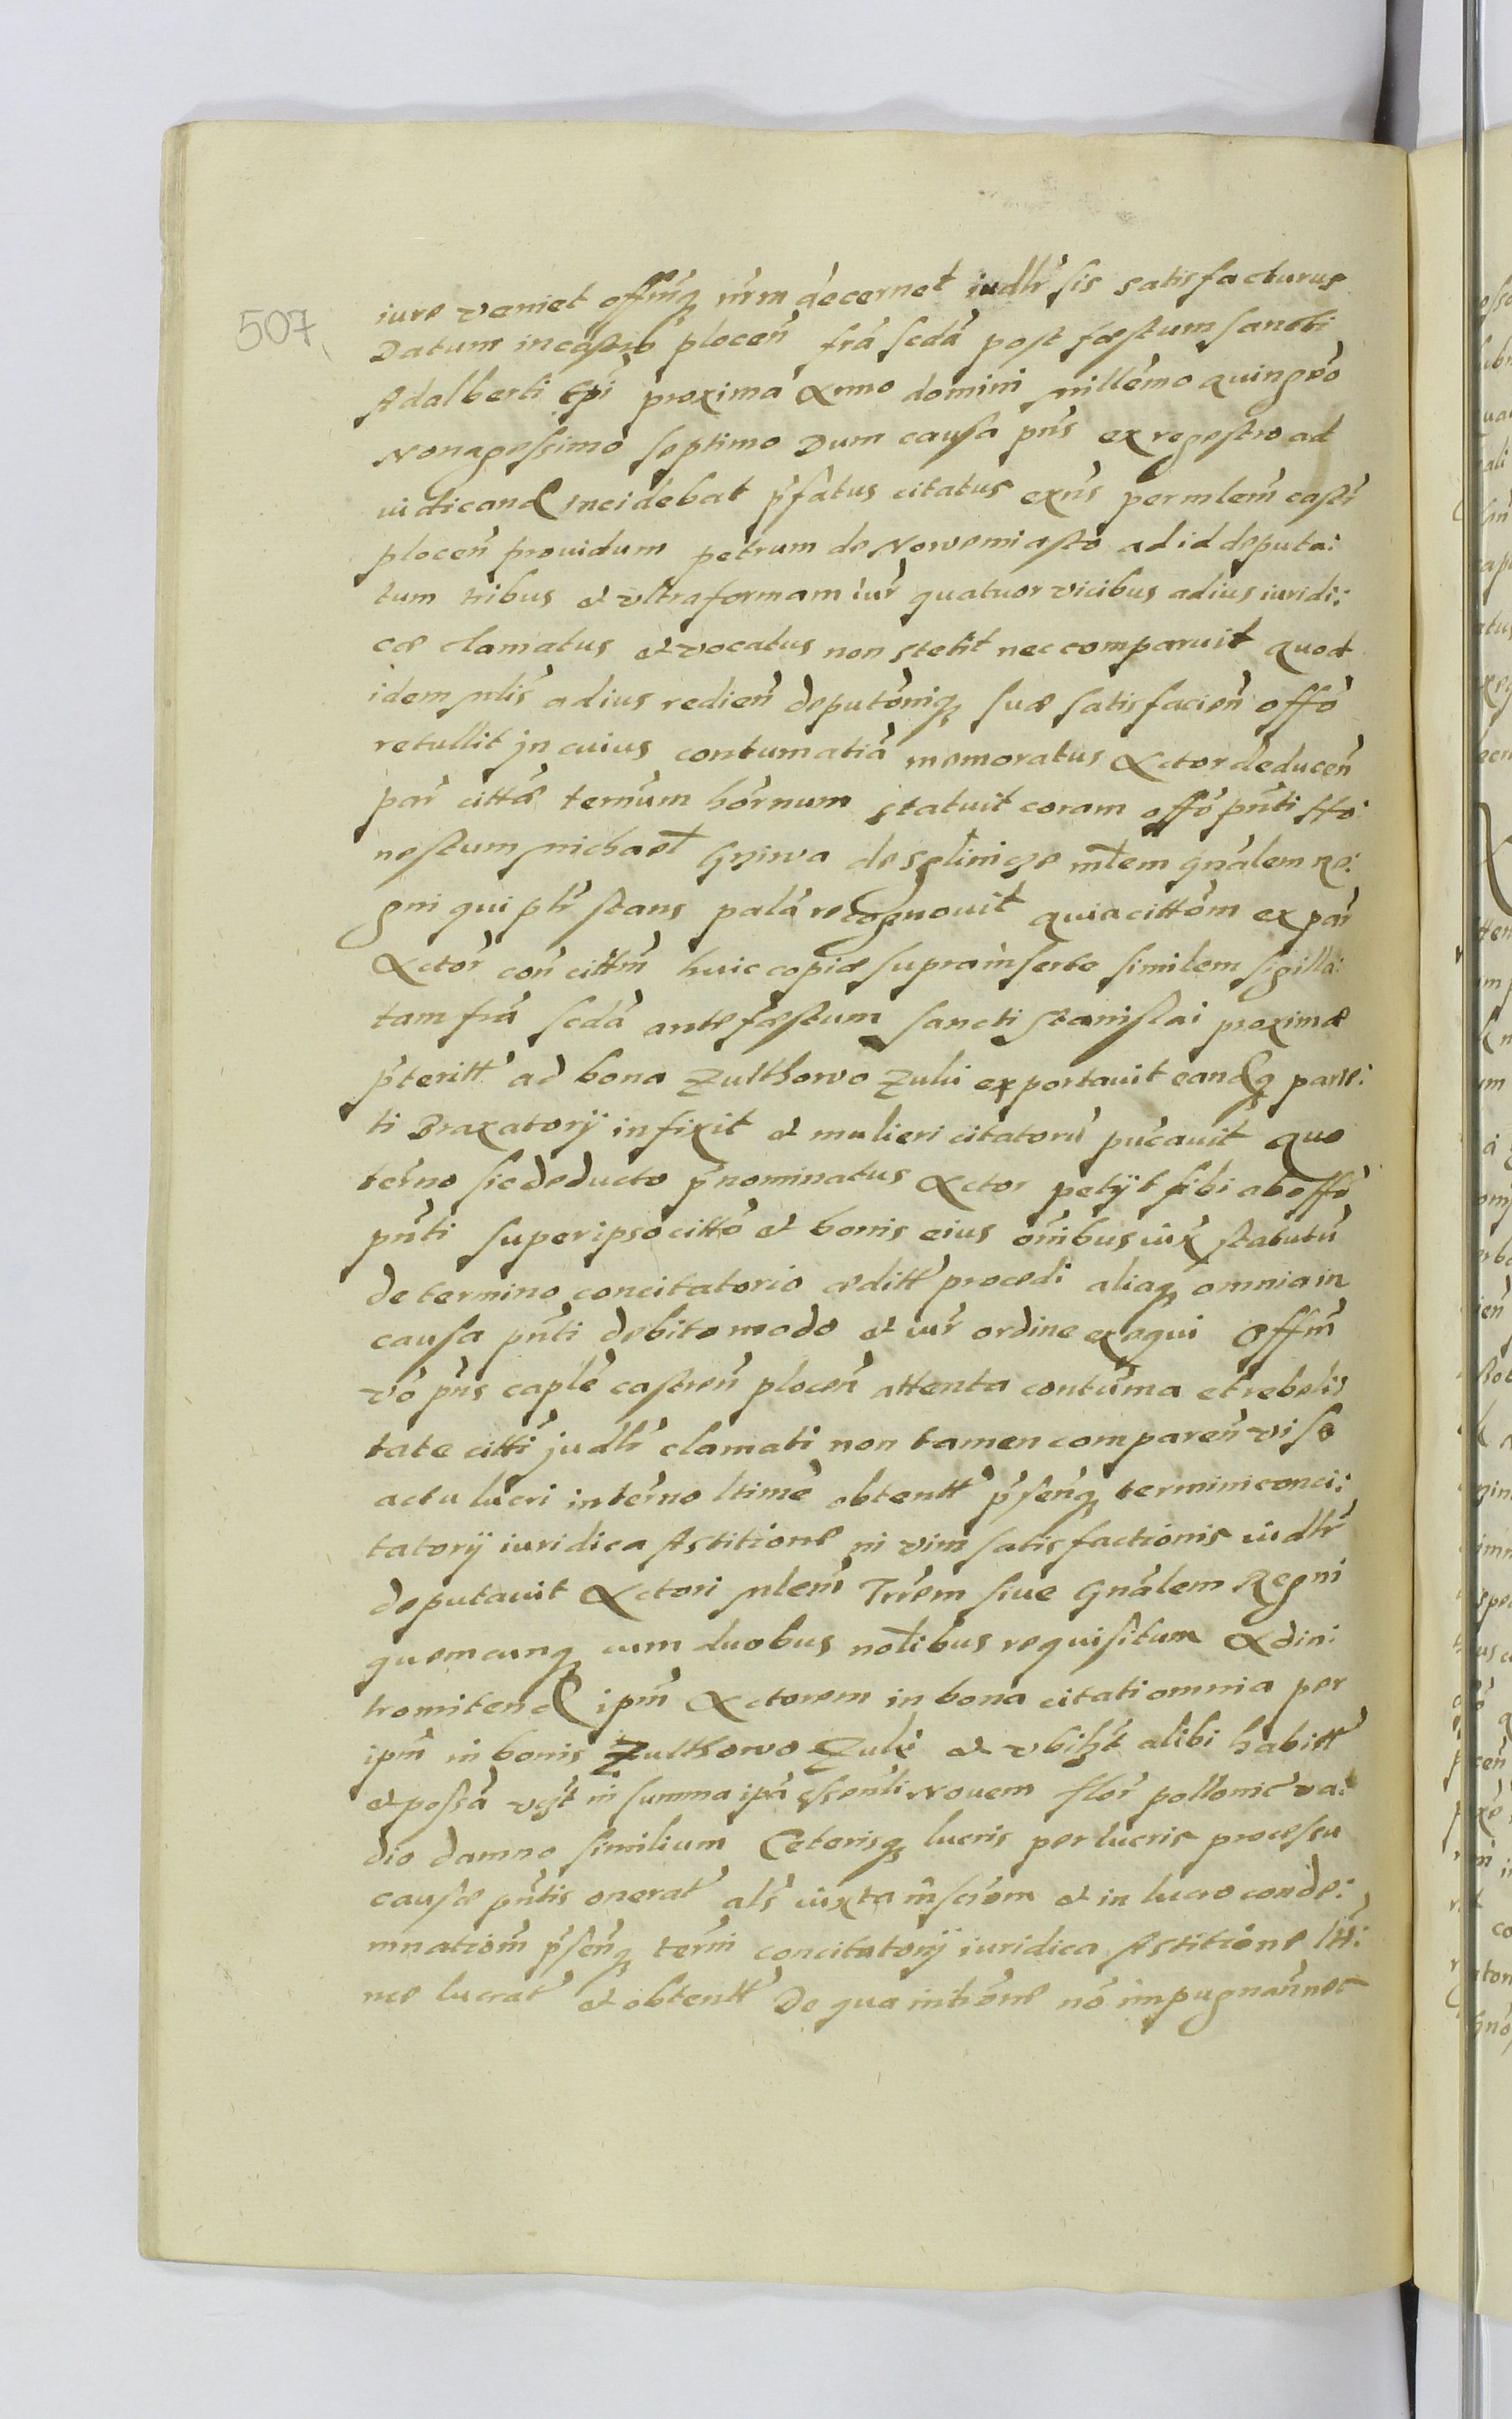 507
iure veniet offmq nrm decernet iudlr sis satisfacturus
Datum in castro plocen fra scda post fæstum sancti
Adalberti Epi proxima Anno domini millemo quingeo
Nonagessimo septimo Dum causa pns ex regestro ad
iudicand Incidebat pfatus citatus exns per mlem castr
plocen prouidum petrum de Nowemiasto ad id deputa:
tum tribus et vltra formam iur quatuor vicibus ad ius iuridi:
cæ clamatus et vocatus non stetit nec comparuit quod
idem mlis ad ius redien deputoniq suæ satisfacien offo
retullit jn cuius contumatia memoratus Actor deducen
par cittæ ternum hornum statuit coram offo pnti Ho:
nestum michael Gziwa de mlem gnalem Re:
gni qui plr stans pala recognouit quia cittom ex par
Actor con cittm huic copiæ supra inserte similem sigilla:
tam fra scda ante fæstum sancti Stanislai proximæ
pteritt ad bona Zulthowo Zului exportauit eandq parie:
ti Braxatorij infixit et mulieri citatoru pucauit quo
terno sic deducto pnominatus Actor petijt sibi ab offo
pnti super ipso citto et bonis eius omibus iux statutu
de termino concitatorio æditt procedi aliaq omnia in
causa pnti debito modo et iur ordine exequi Offm
vo pns caplē castren plocen attenta contuma et rebelis
tate citti judlr clamati non tamen comparen viso
actu lucri in terno ltime obtentt psenq termini conci:
tatorij iuridica Astitione in vim satisfactionis iudlr
deputauit Actori mlem Trrem siue Gnalem Regni
quemcunq cum duobus nolibus requisitum Ad in:
tromitend ipm Actorem in bona citati omnia per
ipm in bonis Zulthowo Zuli et vbi alibi habitt
et possa in summa ipa Nouem flor pollonic va:
dio damno similium Ceterisq lucris per lucris processu
causæ pntis onerat als iuxta inscrom et in lucro conde:
mnationm psenq termi concitatorij iuridica Astitione ltt:
me lucrat et obtentt De qua introne no